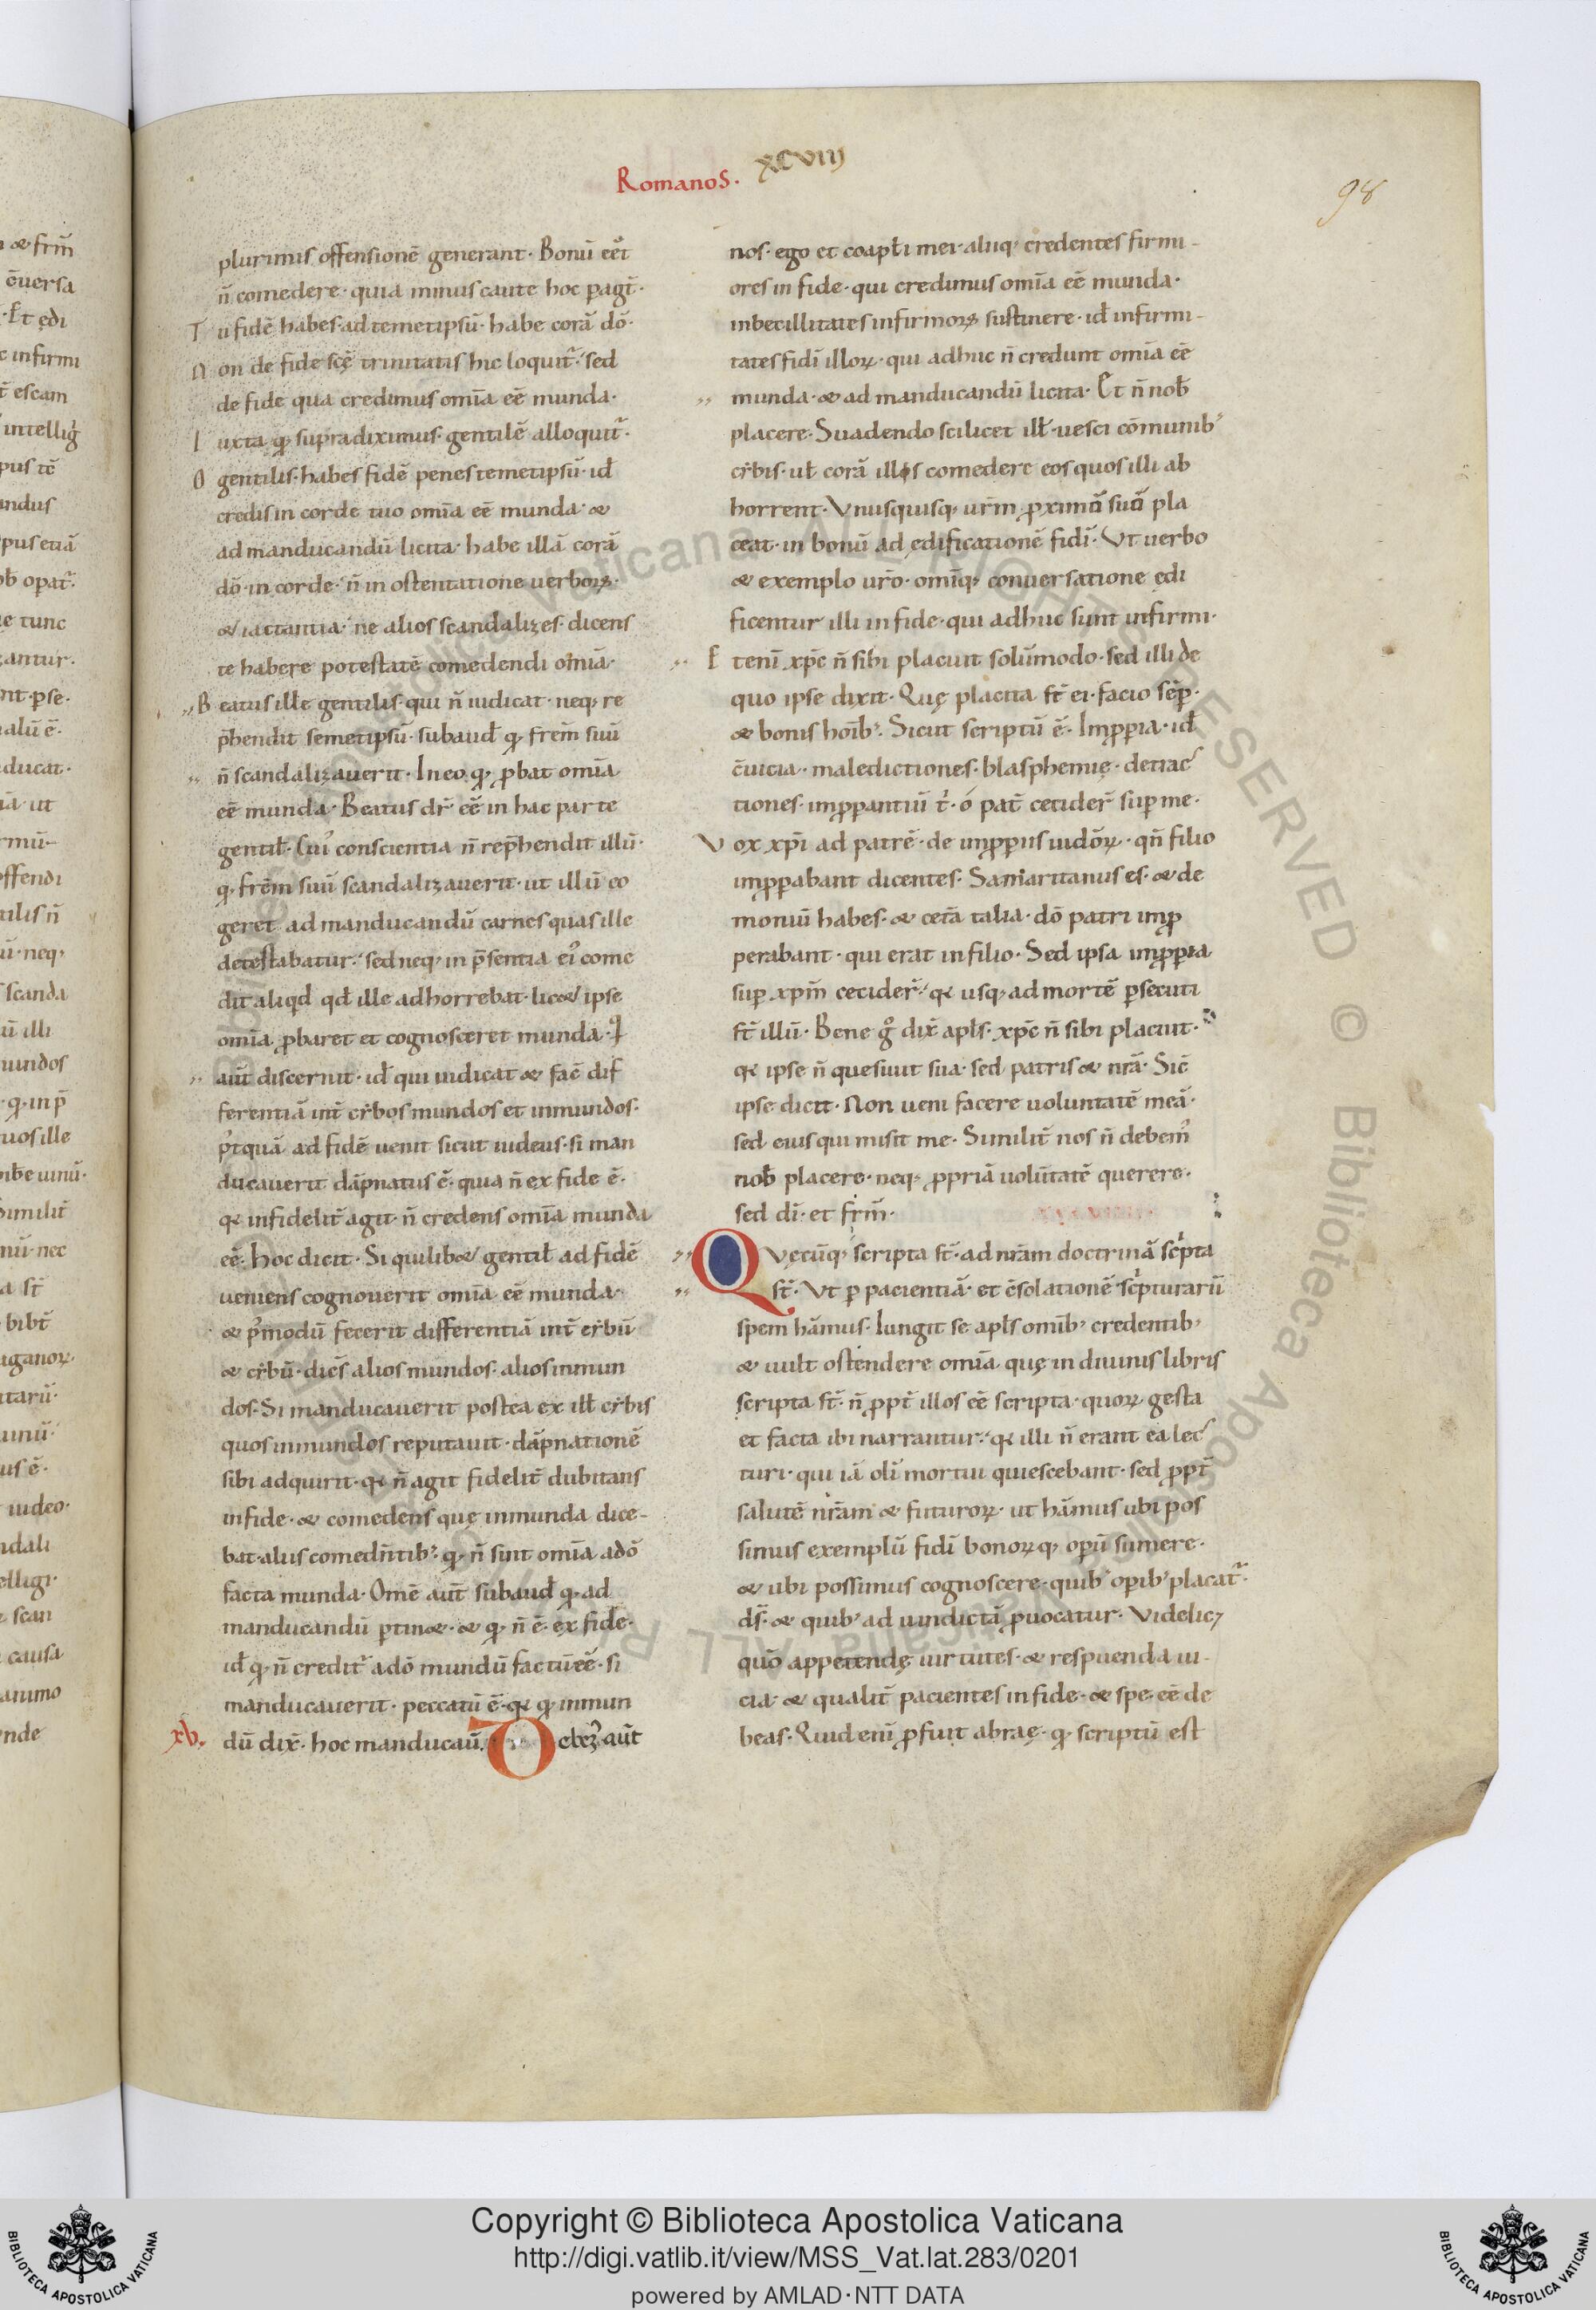 Romanos.
XCVIII
98
plurimis offensionē generant. Bonū eēt
n̄ comedere. quia minus caute hoc pagt̄.
Tu fidē habes. ad temetipsū. habe corā dō.
Non de fide sc̄ę trinitatis hic loquit᷑. sed
de fide qua credimus om̄ia eē munda.
Iuxta qꝫ supradiximus. gentilē alloquit᷑.
O gentilis. habes fidē penes temetipsū. id̄
credis in corde tuo om̄ia eē munda. &
ad manducandū licita. habe illā corā
dō. in corde. n̄ in ostentatione uerboꝝ.
& iactantia. ne alios scandalizes. dicens
te habere potestatē comedendi om̄ia.
Beatus ille gentilis. qui n̄ iudicat. neqꝫ re
p̄hendit semetipsū. subaud̄ qꝫ frem̄ suū
n̄ scandalizauerit. In eo qꝫ ꝓbat om̄ia
eē munda. Beatus dr̄ eē in hac parte
gentil̄. Cui᷒ conscientia n̄ rep̄hendit illū.
qꝫ frem̄ suū scandalizauerit. ut illū co
geret ad manducandū carnes quas ille
detestabatur. sed neqꝫ in p̄sentia ei᷒ come
dit aliqd̄ qd̄ ille adhorrebat. lic& ipse
om̄ia ꝓbaret et cognosceret munda. Q
aūt discernit. id̄ qui iudicat & fac̄ dif
ferentiā int̄ cib̄os mundos et inmundos.
p᷒tquā ad fidē uenit sicut iudeus. si man
ducauerit dāpnatus ē. quia n̄ ex fide ē.
qꝛ infidelit̄ agit. n̄ credens om̄ia munda
eē. Hoc dicit. Si quilib& gentil̄ ad fidē
ueniens cognouerit omia eē munda.
& p᷒modū fecerit differentiā int̄ cib̄ū
& cib̄ū. dicēs alios mundos. alios inmun
dos. Si manducauerit postea ex ill̄ cib̄is
quos inmundos reputauit. dāpnationē
sibi adquirit. qꝛ n̄ agit fidelit̄ dubitans
in fide. & comedens quę inmunda dice-
bat aliis comedn̄tibꝫ. qꝫ n̄ sint om̄ia a dō
facta munda. Omē aūt subaud̄ qꝫ ad
manducandū ꝑtin&. & qꝫ n̄ ē. ex fide.
id̄ qꝫ n̄ credit᷑ a dō mundū factū eē. si
manducauerit. peccatū ē. qꝛ qꝫ inmun
xv. dū dix̄. hoc manducau. Debem᷒ aūt
nos. ego et coapl̄i mei. aliiqꝫ credentes firmi-
ores in fide. qui credimus om̄ia eē munda.
inbecillitates infirmoꝝ sustinere. id̄ infirmi-
tates fidī illoꝝ. qui adhuc n̄ credunt om̄ia eē
munda. & ad manducandū licita. Et n̄ nob̄
placere. Suadendo scilicet ill̄. uesci cōmunibꝫ
cib̄is. ul̄ corā illis comedere eos quos illi ab
horrent. Vnusquisqꝫ urm̄ ꝓximo suo pla
ceat. in bonū ad ędificationē fidī. Vt uerbo
& exemplo uro. om̄iqꝫ conuersatione ędi
ficentur illi in fide. qui adhuc sunt infirmi.
Etenī xp̄c n̄ sibi placuit solūmodo. sed illi de
quo ipse dixit. Quę placita st̄ ei. facio sēp̄.
& bonis hoīb᷒. Sicut scriptū ē. Imꝓꝑia. id̄
c̄uicia. maledictiones. blasphemię. detrac
tiones. imꝓꝑantiū t̄. ó pat̄ cecider̄ sup me.
Vox xp̄i ad patrē. de imꝓꝑiis iudōꝝ. qn̄ filio
imꝓꝑabant dicentes. Samaritanus es. & de
moniū habes. & cet̄a talia. dō patri imꝓ
perabant. qui erat in filio. Sed ipsa imꝓꝑia
sup xp̄m cecider̄. qꝛ usqꝫ ad mortē ꝑsecuti
st̄ illū. Bene g̊ dix̄ apl̄s. xp̄c n̄ sibi placuit.
qꝛ ipse n̄ quesiuit sua. sed patris & nrā. Sic̄
ipse dicit. Non ueni facere uoluntatē meā.
sed eius qui misit me. Similit̄ nos n̄ debem᷒
nob̄ placere. neqꝫ ꝓpriā uolūtatē querere.
sed dī. et frm̄.
Quęcūqꝫ scripta st̄. ad nrām doctrinā sc͛pta
st̄. Vt ꝑ pacientiā. et c̄solationē sc͛pturarū
spem hām̄us. Iungit se apl̄s omibꝫ credentibꝫ
& uult ostendere om̄ia quę in diuinis libris
scripta st̄. n̄ ꝓpt̄ illos eē scripta. quoꝝ gesta
et facta ibi narrantur. qꝛ illi n̄ erant ea lec
turi. qui iā olī mortui quiescebant. sed ꝓpt̄
salutē nrām & futuroꝝ. ut hām̄us ubi pos
simus exemplū fidī bonoꝝqꝫ opū sumere.
& ubi possimus cognoscere. quibꝫ opibꝫ placat᷑.
ds̄. & quibꝫ ad uindictā ꝓuocatur. Videlicꝫ
quō appetendę uirtutes. & respuenda ui-
cia. & qualit̄ pacientes in fide. & spe. eē de
beas. Quid enī ꝓfuit abraę. qꝫ scriptū est
Copyright © Biblioteca Apostolica Vaticana
http://digi.vatlib.it/view/MSS_Vat.lat.283/0201
powered by AMLAD·NTT DATA
BIBLIOTECA APOSTOLICA VATICANA
BIBLIOTECA APOSTOLICA VATICANA